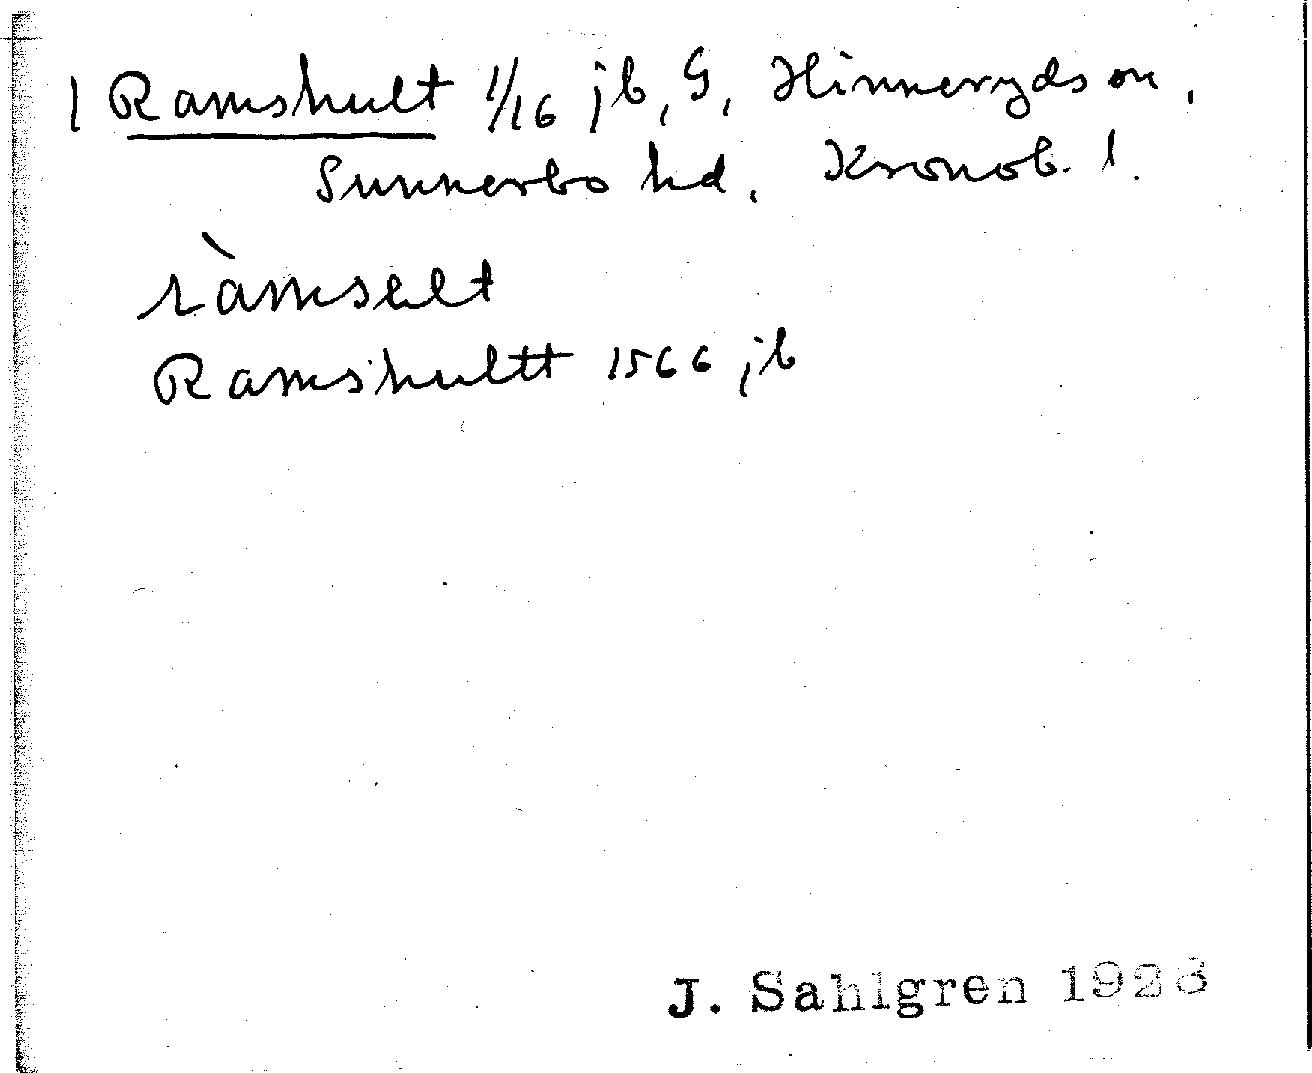 1 Ramshult 1/16 jb, G, Hinneryds sn,
Sunnerbo hd. Kronob. l.
ràmsælt
Ramshultt 1566 jb
J. Sahlgren 1928